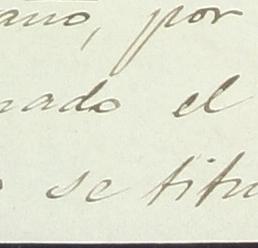 ano, por
nado el
se titu